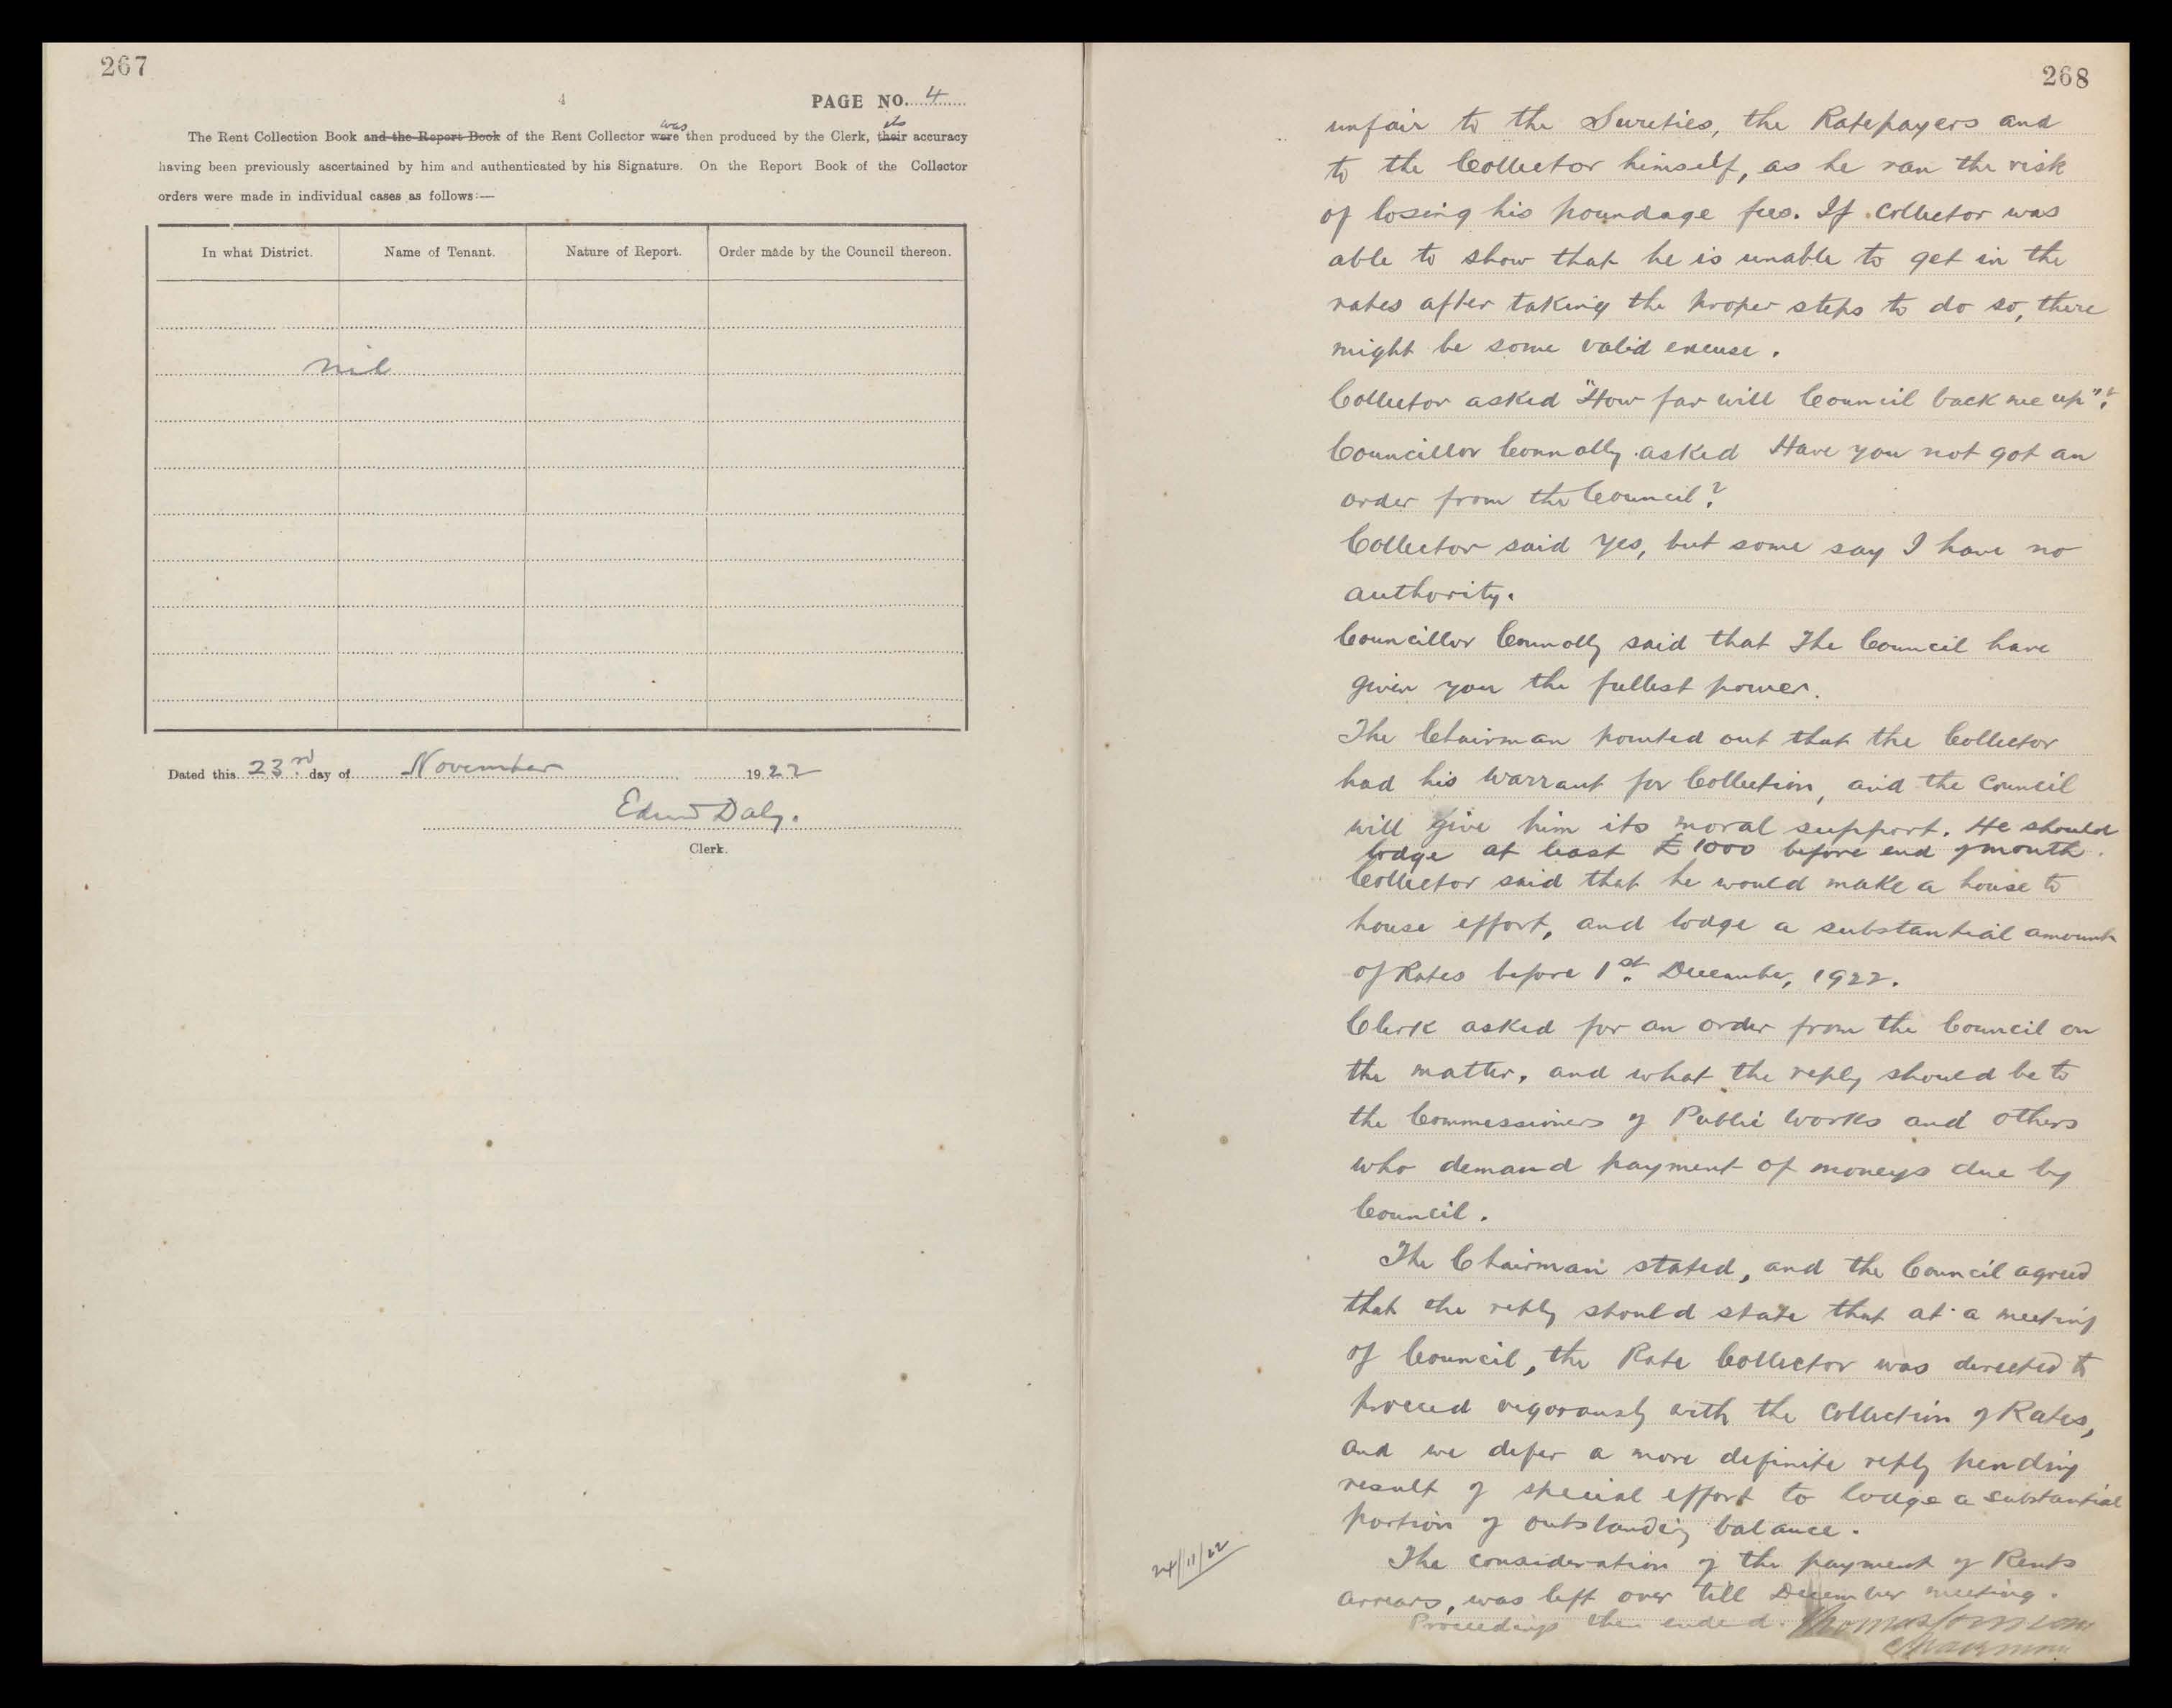 267
PAGE NO. 4
was its
The Rent Collection Book and the Report Book of the Rent Collector were then produced by the Clerk, their accuracy
having been previously ascertained by him and authenticated by his Signature. On the Report Book of the Collector
orders were made in individual cases as follows:—
In what District. Name of Tenant. Nature of Report. Order made by the Council thereon.
nil
Dated this 23rd day of November 1922
Edwd Daly.
Clerk.
268
unfair to the Sureties, the Ratepayers and
to the Collector himself, as he ran the risk
of losing his poundage fees. If Collector was
able to show that he is unable to get in the
rates after taking the proper steps to do so, there
might be some valid excuse.
Collector asked "How far will Council back me up"?
Councillor Connolly asked Have you not got an
order from the Council?
Collector said Yes, but some say I have no
authority.
Councillor Connolly said that The Council have
given you the fullest power.
The Chairman pointed out that the Collector
had his Warrant for Collection, and the Council
will give him its moral support. He should
lodge at least £1000 before end of month.
Collector said that he would make a house to
house effort, and lodge a substantial amount
of Rates before 1st December, 1922.
Clerk asked for an order from the Council on
the matter, and what the reply should be to
the Commissioners of Public Works and others
who demand payment of moneys due by
Council.
The Chairman stated, and the Council agreed
that the reply should state that at a meeting
of Council, the Rate Collector was directed to
proceed vigorously with the Collection of Rates,
and we defer a more definite reply pending
result of special effort to lodge a substantial
portion of outstanding balance.
The consideration of the payment of Rents
arrears, was left over till December meeting.
Proceedings then ended. Thomas
Chairman
24/11/22